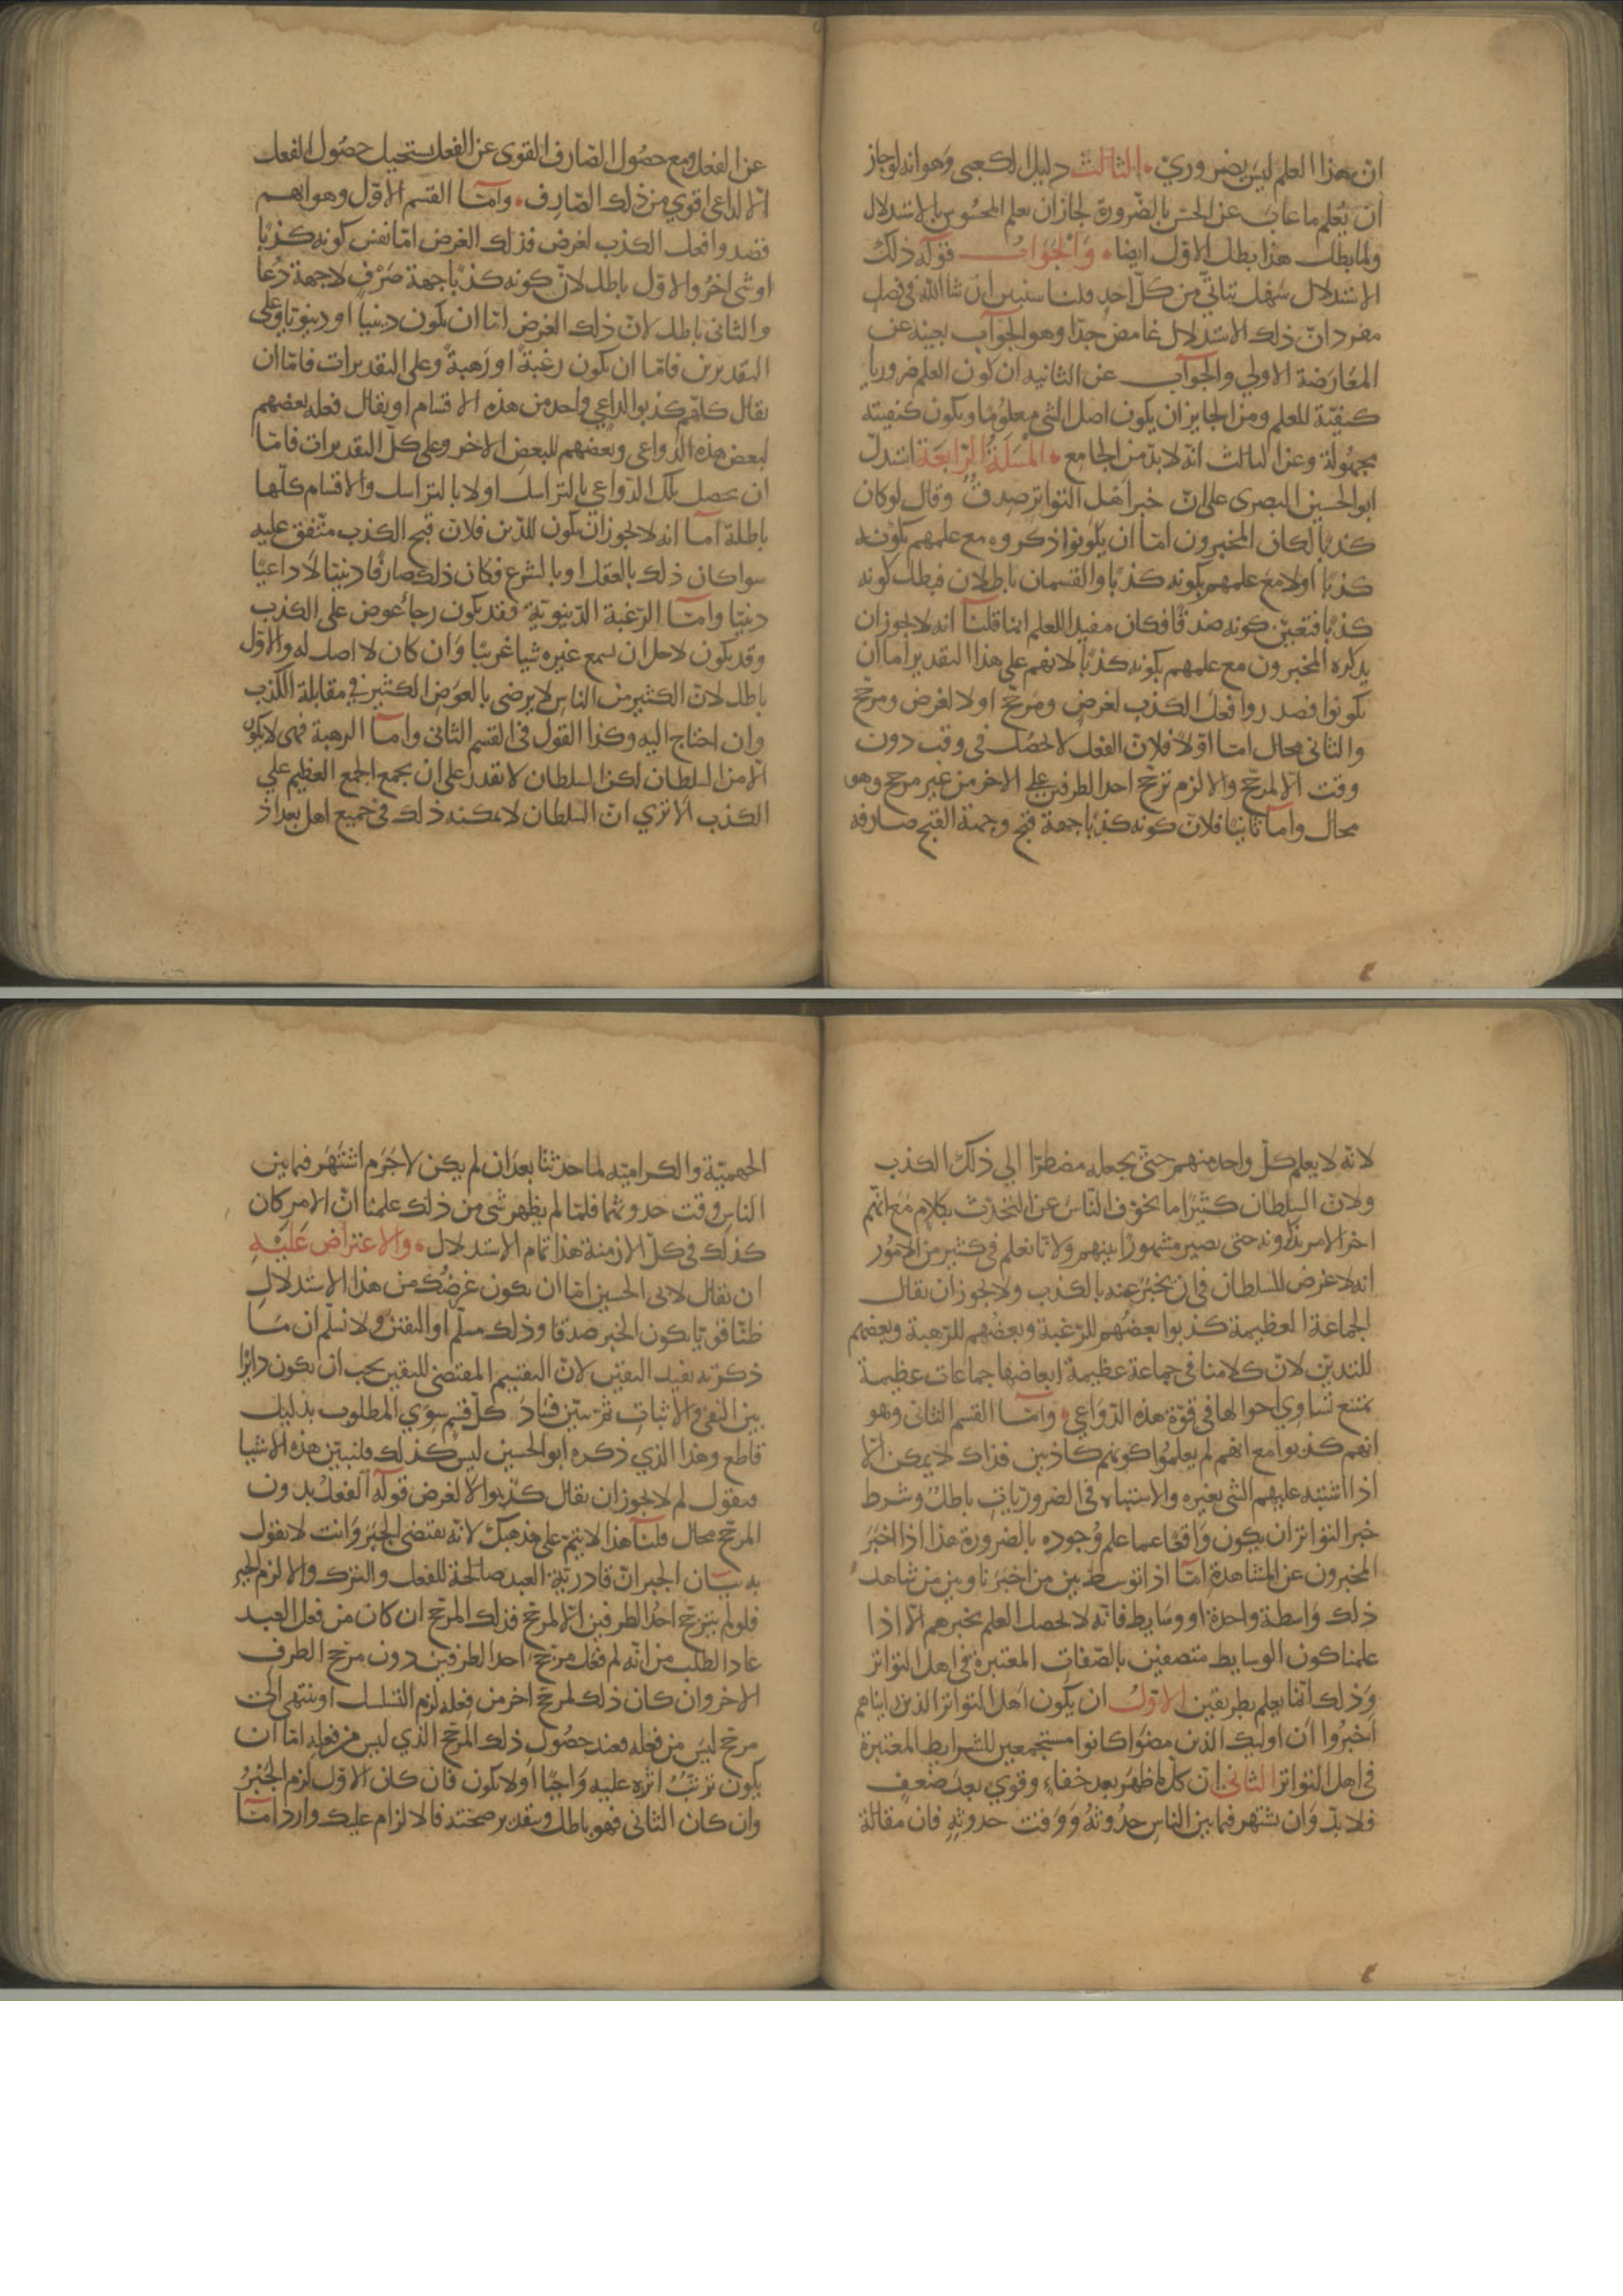 ان هذا العلم ليس بضروري الثالث دليل الكعبى وهو انه لو جاز
ان يعلم ما غاب عن الحس بالضرورة لجاز ان يعلم المحسوس بالاستدلال
ولما بطل هذا بطل الاول ايضا والجواب قوله ذلك
الاستدلال سهل يتاتى من كل احد قلنا سنبين ان شا الله فى فصل
مفرد ان ذلك الاستدلال غامض جدا وهو الجواب بعينه عن
المعارضة الاولي والجواب عن الثانيه ان كون العلم ضروريا
كيفية للعلم ومن الجايز ان يكون اصل الشى معلوما ويكون كيفيته
مجهولة وعن الثالث انه لا بد من الجامع المسلة الرابعة استدل
ابو الحسين البصرى على ان خبر اهل التواتر صدق وقال لو كان
كذبا لكان المخبرون اما ان يكونوا ذكروه مع علمهم بكونه
كذبا او لا مع علمهم بكونه كذبا والقسمان باطلان فبطل كونه
كذبا فتعين كونه صدقا فكان مفيدا للعلم انما قلنا انه لا يجوز ان
يذكره المخبرون مع علمهم بكونه كذبا لانهم على هذا التقدير اما ان
يكونوا قصدوا فعل الكذب لغرض ومرجح او لا لغرض ومرجح
والثانى محال اما اولا فلان الفعل لا يحصل فى وقت دون
وقت الا لمرجح والا لزم ترجح احد الطرفين على الاخر من غير مرجح وهو
محال واما ثانيا فلان كونه كذبا جهة قبح وجهة القبح صارفه
عن الفعل ومع حصول الصارف القوى عن الفعل يستحيل حصول الفعل
الا لداعى اقوي من ذلك الصارف واما القسم الاول وهو انهم
قصدوا فعل الكذب لغرض فذلك الغرض اما نفس كونه كذبا
او شى اخر والاول باطل لان كونه كذبا جهة صرف لا جهة دعا
والثانى باطل لان ذلك الغرض اما ان يكون دينيا او دنيويا وعلى
التقديرين فاما ان يكون رغبة او رهبة وعلى التقديرات فاما ان
يقال كلهم كذبوا لداعي واحد من هذه الاقسام او يقال فعله بعضهم
لبعض هذه الدواعى وبعضهم للبعض الاخر وعلى كل التقديرات فاما
ان يحصل تلك الدواعي بالتراسل او لا بالتراسل والاقسام كلها
باطلة اما انه لا يجوز ان يكون للدين فلان قبح الكذب متفق عليه
سوا كان ذلك بالعقل او بالشرع فكان ذلك صارفا دينيا لا داعيا
دينيا واما الرغبة الدنيوية فقد يكون رجا عوض على الكذب
وقد يكون لاجل ان يسمع غيره شيا غريبا وان كان لا اصل له والاول
باطل لان الكثير من الناس لا يرضى بالعوض الكثير في مقابلة الكذب
وان احتاج اليه وكذا القول فى القسم الثانى واما الرهبة فهى لا يكون
الا من السلطان لكن السلطان لا يقدر على ان يجمع الجمع العظيم علي
الكذب الا ترى ان السلطان لا يمكنه ذلك فى جميع اهل بغداذ
لانه لا يعلم كل واحد منهم حتى يجعله مضطرا الى ذلك الكذب
ولان السلطان كثيرا ما يخوف الناس عن التحدث بكلام مع انهم
اخر الامر يذكرونه حتى يصير مشهورا بينهم ولانا نعلم فى كثير من الامور
انه لا غرض للسلطان فى ان يخبر عنه بالكذب ولا يجوز ان يقال
الجماعة العظيمة كذبوا بعضهم للرغبة وبعضهم للرهبة وبعضهم
للتدين لان كلامنا فى جماعة عظيمة ابعاضها جماعات عظيمة
يمتنع تساوي احوالها فى قوة هذه الدواعي واما القسم الثانى وهو
انهم كذبوا مع انهم لم يعلموا كونهم كاذبين فذاك لا يمكن الا
اذا اشتبه عليهم الشى بغيره والاشتباه فى الضروريات باطل وشرط
خبر التواتر ان يكون واقعا عما علم وجوده بالضرورة هذا اذا اخبر
المخبرون عن المشاهدة اما اذا توسط بين من اخبرنا وبين من شاهد
ذلك واسطة واحدة او وسايط فانه لا يحصل العلم بخبرهم الا اذا
علمنا كون الوسايط متصفين بالصفات المعتبرة فى اهل التواتر
وذلك انما يعلم بطريقين الاول ان يكون اهل التواتر الذين رايناهم
اخبروا ان اوليك الذين مضوا كانوا مستجمعين للشرايط المعتبرة
فى اهل التواتر الثانى ان كل ما ظهر بعد خفاء وقوي بعد ضعف
فلا بد وان يشتهر فيما بين الناس حدوثه ووقت حدوثه فان مقالة
الجهمية والكرامية لما حدثتا بعد ان لم يكن لا جرم اشتهر فيما بين
الناس وقت حدوثهما فلما لم يظهر شى من ذلك علمنا ان الامر كان
كذلك فى كل الازمنة هذا تمام الاستدلال والاعتراض عليه
ان يقال لابى الحسين اما ان يكون غرضك من هذا الاستدلال
ظنا قويا بكون الخبر صدقا وذلك مسلم او اليقين ولا نسلم ان ما
ذكرته يفيد اليقين لان التقسيم المقتضى لليقين يجب ان يكون دايرا
بين النفى والاثبات ثم يبين فساد كل قسم سوي المطلوب بدليل
قاطع وهذا الذي ذكره ابو الحسين ليس كذلك فلنبين هذه الاشيا
فنقول لم لا يجوز ان يقال كذبوا لا لغرض قوله الفعل بدون
المرجح محال قلنا هذا لا يتم على مذهبك لانه يقتضى الجبر وانت لا تقول
به بيان الجبر ان قادرية العبد صالحة للفعل والترك والا لزم الجبر
فلو لم يترجح احد الطرفين الا لمرجح فذلك المرجح ان كان من فعل العبد
عاد الطلب من انه لم فعل مرجح احد الطرفين دون مرجح الطرف
الاخر وان كان ذلك لمرجح اخر من فعله لزم التسلسل او ينتهى الى
مرجح ليس من فعله فعند حصول ذلك المرجح الذي ليس من فعله اما ان
يكون ترتب اثره عليه واجبا او لا يكون فان كان الاول لزم الجبر
وان كان الثانى فهو باطل وبتقدير صحته فالالزام عليك وارد اما